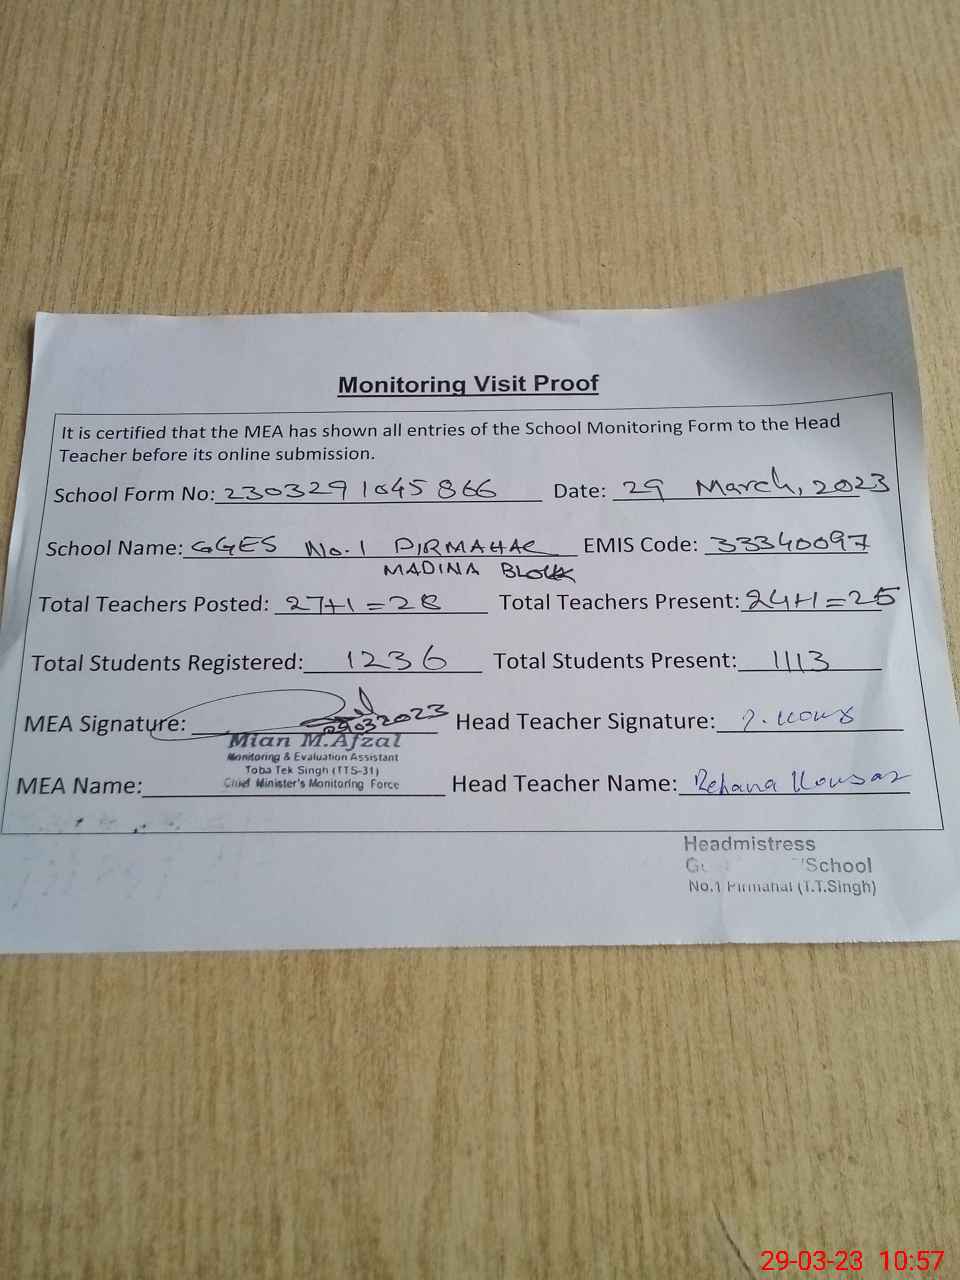 Monitoring Visit Proof
It is certified that the MEA has shown all entries of the School Monitoring Form to the Head
Teacher before its online submission.
School Form No: 2303291045866 Date: 29 March, 2023
School Name: GGES No.1 PIRMAHAL EMIS Code: 33340097
MADINA BLOCK
Total Teachers Posted: 27+1=28 Total Teachers Present: 24+1=25
Total Students Registered: 1236 Total Students Present: 1113
MEA Signature: 29032023 Head Teacher Signature:
Mian M.Afzal
Monitoring & Evaluation Assistant
Toba Tek Singh (TTS-31)
Chief Minister's Monitoring Force
MEA Name: Head Teacher Name: Rehana Kousar
Headmistress
School
No.1 Pirmahal (T.T.Singh)
29-03-23 10:57